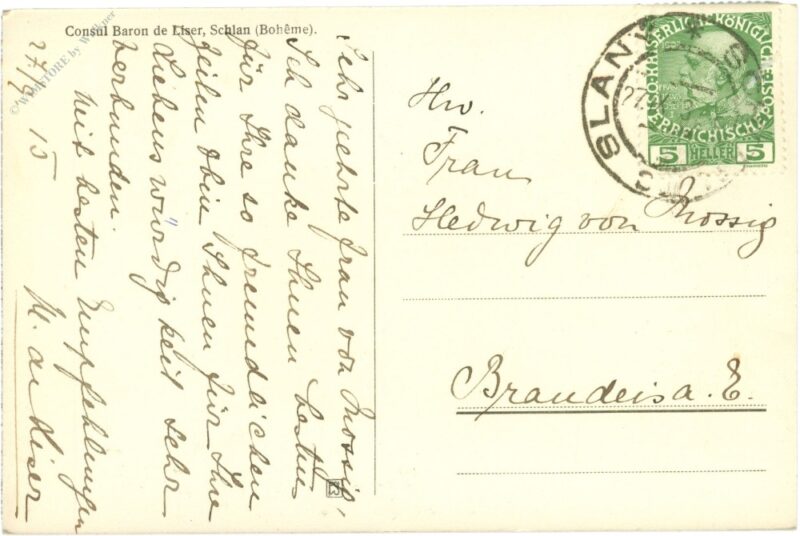 Consul Baron de Liser, Schlan (Bohême).
©WMSTORE by Wallner
Sehr geehrte Frau von Mossig,
Ich danke Ihnen bestens
für Ihre so freundlichen
Zeilen Ihnen für Ihre
Liebenswürdigkeit sehr
verbunden.
Mit besten Empfehlungen
M. de Liser
27/9 15
Hw.
Frau
Hedwig von Mossig
Brandeis a. E.
SLANÝ
KAISERLICH KÖNIGLICHE
ÖSTERREICHISCHE
5 HELLER 5